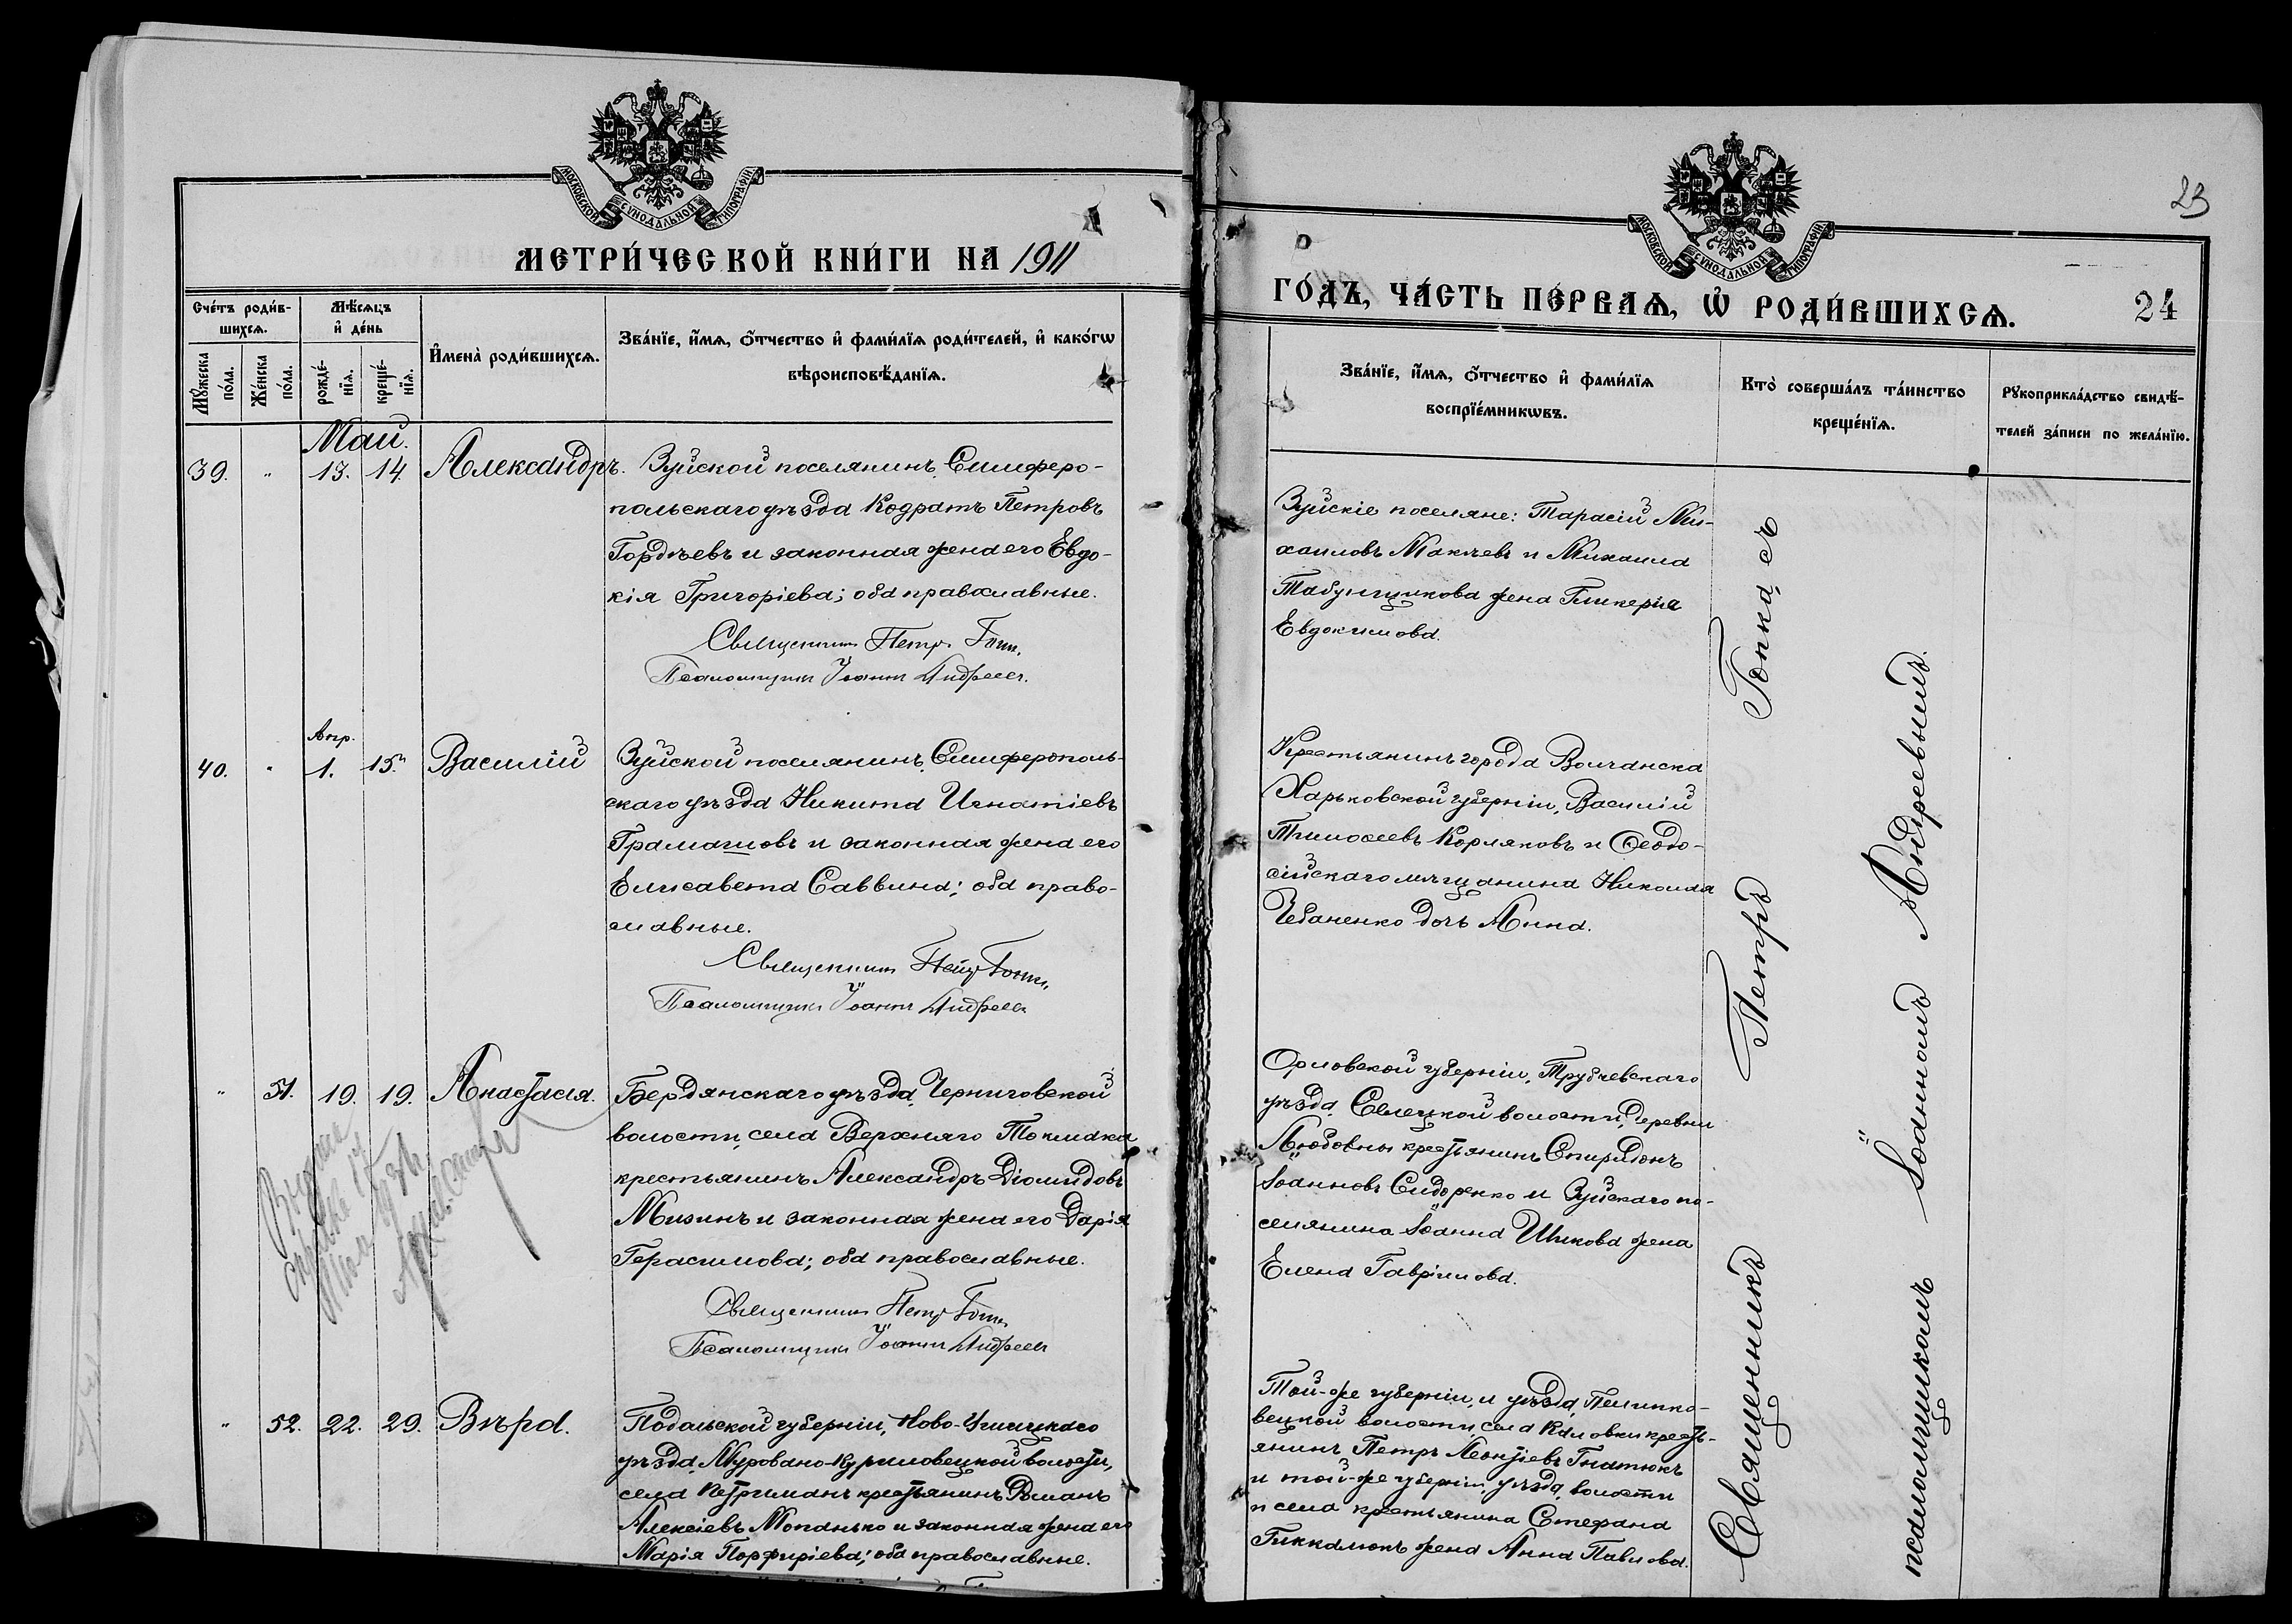 МОСКОВСКОЙ СѴНОДАЛЬНОЙ ТИПОГРАФІИ
МЕТРИ́ЧЕСКОЙ КНИ́ГИ НА 1911
Сче́тъ роди́в-
шихсѧ.
Мѣ́сѧцъ
и҆ де́нь
Мꙋ́жеска
по́ла.
Же́нска
по́ла.
рожде́-
нїѧ.
креще́-
нїѧ.
И҆мена̀ роди́вшихсѧ.
Зва́нїе, и҆́мѧ, ѻ҆́тчество и҆ фами́лїѧ роди́телей, и҆ како́гѡ
вѣроисповѣ́данїѧ.
Май.
39. " 13. 14. Александръ.
Зуйской поселянинъ, Симферо-
польскаго уѣзда Кодратъ Петровъ
Гордѣевъ и законная жена его Евдо-
кія Григоріева; оба православные.
Священникъ Петръ
Псаломщикъ Іоаннъ Андреевъ.
Апр.
40. " 1. 15. Василій
Зуйской поселянинъ, Симферополь-
скаго уѣзда Никита Игнатіевъ
Грамашовъ и законная жена его
Елисавета Саввина; оба право-
славные.
Священникъ Петръ
Псаломщикъ Іоаннъ Андреевъ
" 51. 19. 19. Анастасія.
Бердянскаго уѣзда, Черниговской
волости, села Верхняго Токмака
крестьянинъ Александръ Діомидовъ
Мизинъ и законная жена его Дарія
Герасимова; оба православные.
Священникъ Петръ
Псаломщикъ Іоаннъ Андреевъ
" 52. 22. 29. Вѣра.
Подольской губерніи, Ново-Ушицкаго
уѣзда, Муровано-Куриловецкой волости,
села крестьянинъ Романъ
Алексіевъ Мопанько и законная жена его
Марія Порфиріева; оба православные.
23
МОСКОВСКОЙ СѴНОДАЛЬНОЙ ТИПОГРАФІИ
ГО́ДЪ, ЧА́СТЬ ПЕ́РВАѦ, Ѡ҆ РОДИ́ВШИХСѦ.
24
Зва́нїе, и҆́мѧ, ѻ҆́тчество и҆ фами́лїѧ
воспрїе́мникѡвъ.
Кто̀ соверша́лъ та́инство
креще́нїѧ.
Рꙋкоприкла́дство свидѣ́-
телей за́писи по жела́нїю.
Зуйскіе поселяне: Тарасій Ми-
хаиловъ Макѣевъ и Михаила
Табунщикова жена Гликерія
Евдокимова.
Крестьянинъ города Волчанска
Харьковской губерніи, Василій
Тимоѳеевъ Корляковъ и Ѳеодо-
сійскаго мѣщанина Николая
Чебаненко дочь Анна.
Орловской губерніи, Трубчевскаго
уѣзда, Селецкой волости, деревни
Любовны крестьянинъ Спиридонъ
Іоанновъ Сидоренко и Зуйскаго по-
селянина Іоанна Шикова жена
Елена Гавріилова.
Той-же губерніи и уѣзда,
волости, села крестъ-
янинъ Петръ Леонтіевъ Гнатюкъ
и той-же губерніи, уѣзда, волости
и села крестьянина Стефана
жена Анна Павлова.
Священникъ Петръ съ
псаломщикомъ Іоанномъ Андреевымъ.